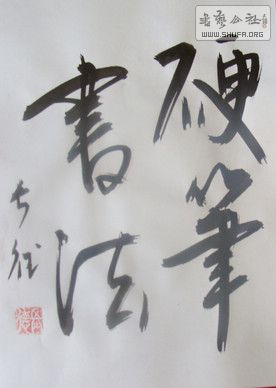 硬筆
書法
书艺公社
WWW.SHUFA.ORG